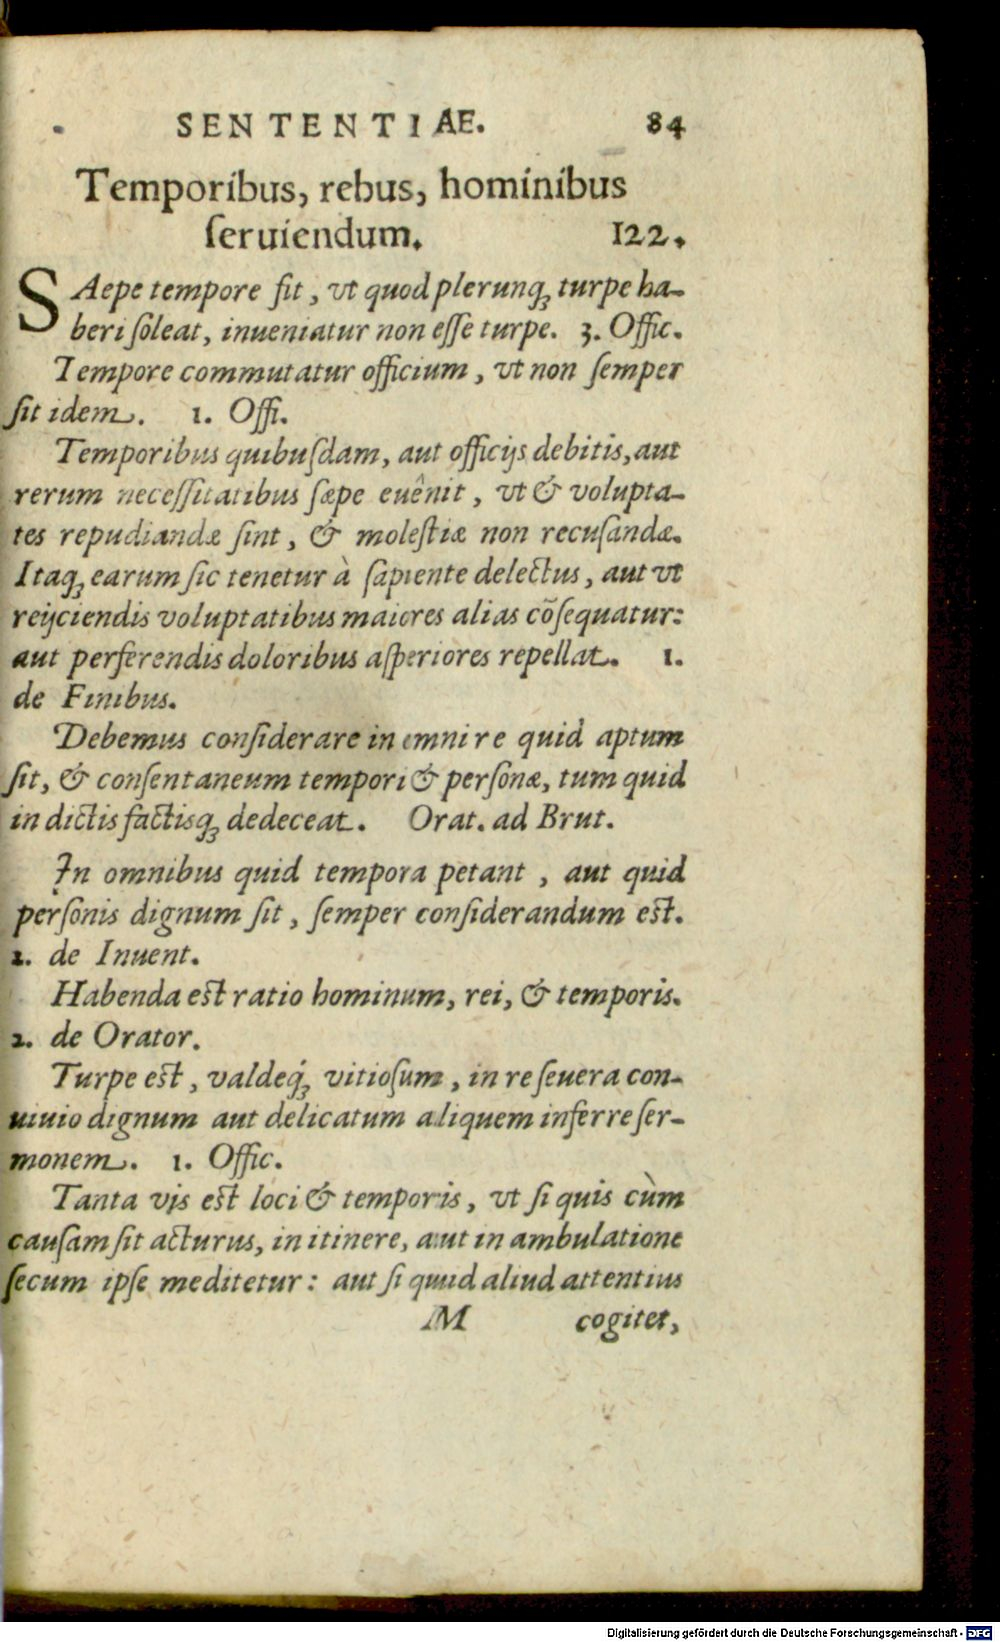 SENTENTIAE. 84
Temporibus, rebus, hominibus
ſeruiendum. 122.
SAepe tempore fit, vt quod plerunq́ꝫ turpe ha-
beri ſoleat, inueniatur non eſſe turpe. 3. Offic.
Tempore commutatur officium, vt non ſemper
ſit idem. 1. Offi.
Temporibus quibuſdam, aut officijs debitis, aut
rerum neceſſitatibus ſæpe euênit, vt & volupta-
tes repudiandæ ſint, & moleſtiæ non recuſandæ.
Itaqꝫ earum ſic tenetur à ſapiente delectus, aut vt
reijciendis voluptatibus maiores alias cōſequatur:
aut perferendis doloribus aſperiores repellat. 1.
de Finibus.
Debemus conſiderare in omni re quid aptum
ſit, & conſentaneum tempori & perſonæ, tum quid
in dictis factisqꝫ dedeceat. Orat. ad Brut.
In omnibus quid tempora petant, aut quid
perſonis dignum ſit, ſemper conſiderandum eſt.
2. de Inuent.
Habenda eſt ratio hominum, rei, & temporis.
2. de Orator.
Turpe eſt, valdeq́ꝫ vitioſum, in re ſeuera con-
uiuio dignum aut delicatum aliquem inferre ſer-
monem. 1. Offic.
Tanta vis eſt loci & temporis, vt ſi quis cùm
cauſam ſit acturus, in itinere, aut in ambulatione
ſecum ipſe meditetur: aut ſi quid aliud attentius
M cogitet,
Digitalisierung gefördert durch die Deutsche Forschungsgemeinschaft - DFG